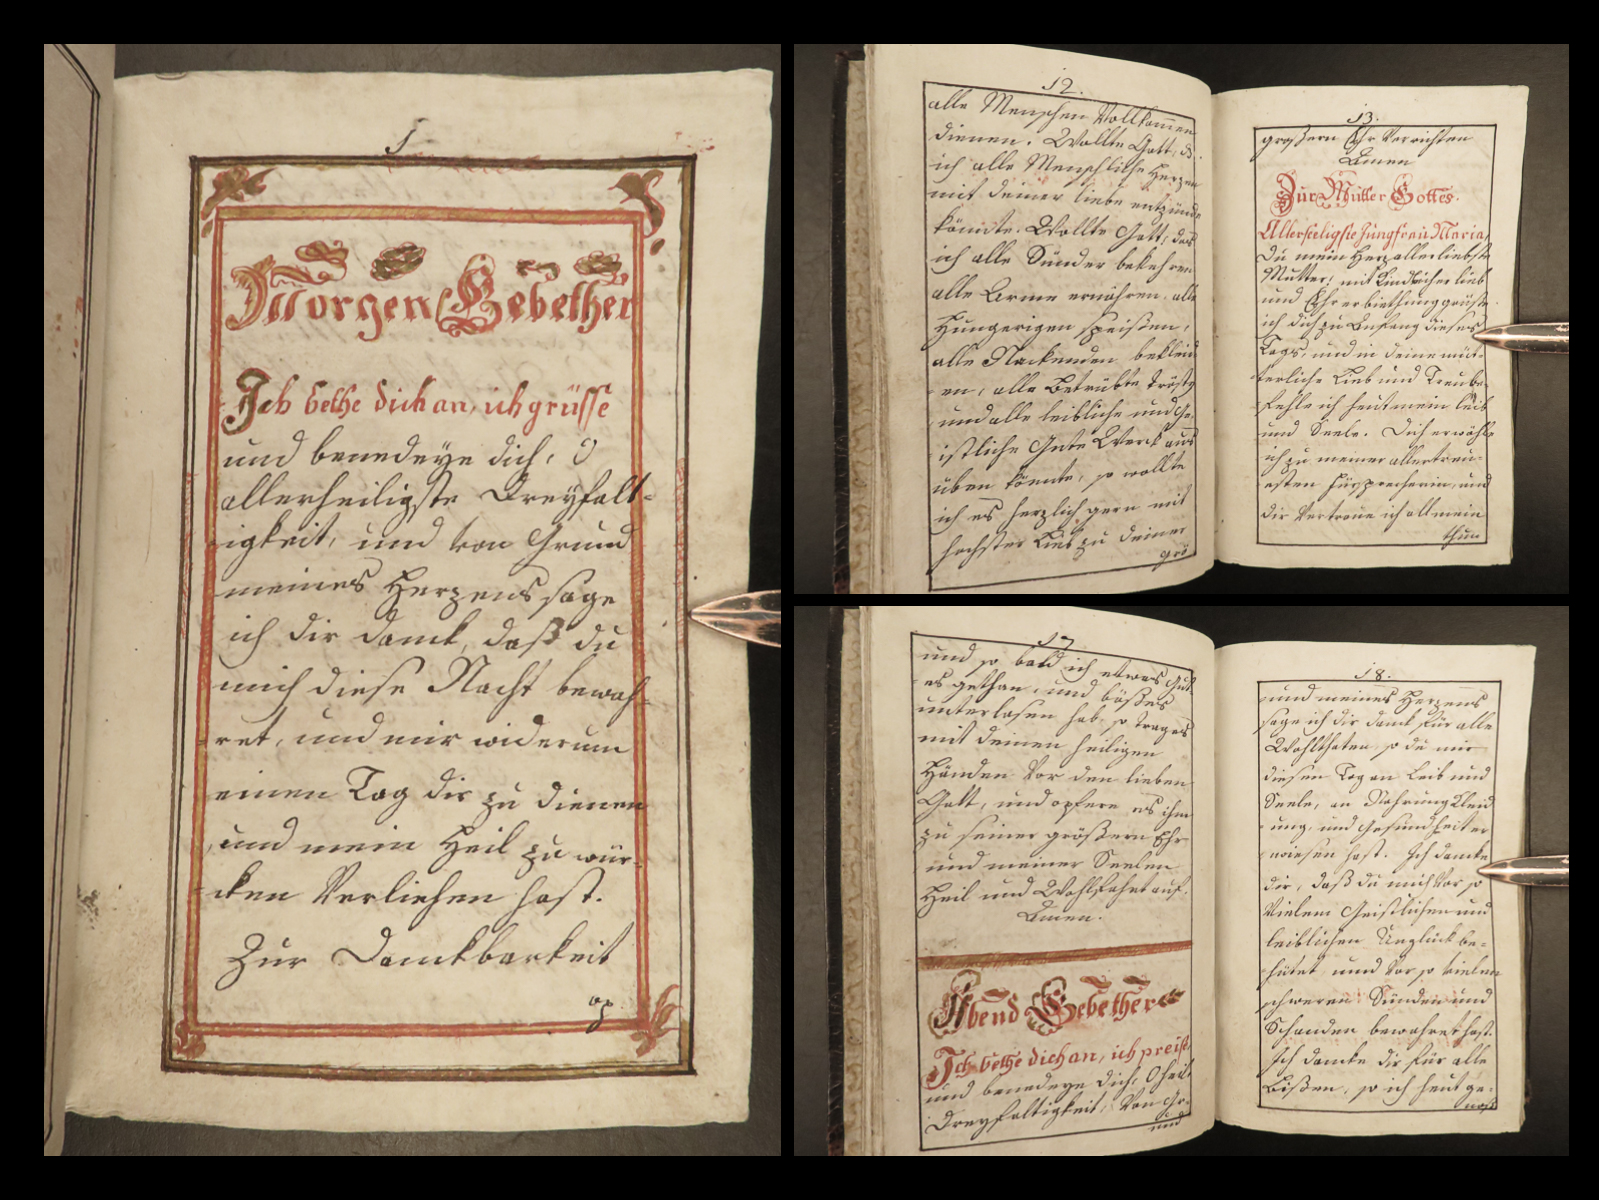 1
Morgen Gebether
Ich bethe dich an, ich grüsse
und benedeye dich, O
allerheiligste Dreyfalt-
igkeit, und von Grund
meines Herzens sage
ich dir danck, daß du
mich diese Nacht bewah-
ret, und mir widerum
einen Tag dir zu dienen
und mein Heil zu wür-
cken Verliehen hast.
Zur Danckbarkeit
op
12.
alle Menschen Vollkommen
dienen. Wollte Gott, 
ich alle Menschliche Herzen
mit deiner liebe entzünde
könnte. Wollte Gott, das
ich alle Sünder bekehren
alle Arme ernähren, alle
Hungerigen speißen,
alle Nackenden bekleid
en, alle Betrübte tröste
und alle leibliche und Ge-
istliche Gute Werck aus
üben könnte, so wollte
ich es herzlich gern mit
höchster Lieb zu deiner
grö
13.
großern Ehr Verrichten
Amen
Zur Mutter Gottes.
Allerseeligste Jungfrau Maria,
Du mein Herz allerliebste
Mutter, mit Kindlicher lieb
und Ehrerbiethung grüße
ich dich zu Anfang dieses
Tags, und in deine müt-
terliche Lieb und Treu be-
fehle ich heut mein leib
und Seele. Dich erwähle
ich zu meiner allertreu-
esten Fürsprecherin, und
dir Vertraue ich all mein
thun
17
und so bald ich etwas Gut-
es gethan, und böses
unterlasen hab, so trage es
mit deinen heiligen
Händen Vor den lieben
Gott, und opfere es ihm
zu seiner größern Ehr
und meiner Seelen
Heil und Wohlfahrt auf.
Amen.
Abend Gebether
Ich bethe dich an, ich preise
und benedeye dich, O heil.
Dreyfaltigkeit, Von Gr-
und
18.
und meines Herzens
sage ich dir danck für alle
Wohlthaten, so du mir
diesen Tag an Leib und
Seele, an Nahrung Kleid
ung, und Gesundheit er
wiesen hast. Ich dancke
dir, daß du mich Vor so
Vielem Geistlichen und
leiblichen Unglück be-
hütet, und Vor so vielen
schweren Sünden und
Schanden bewahret hast.
Ich dancke dir für alle
Bißen, so ich heut ge-